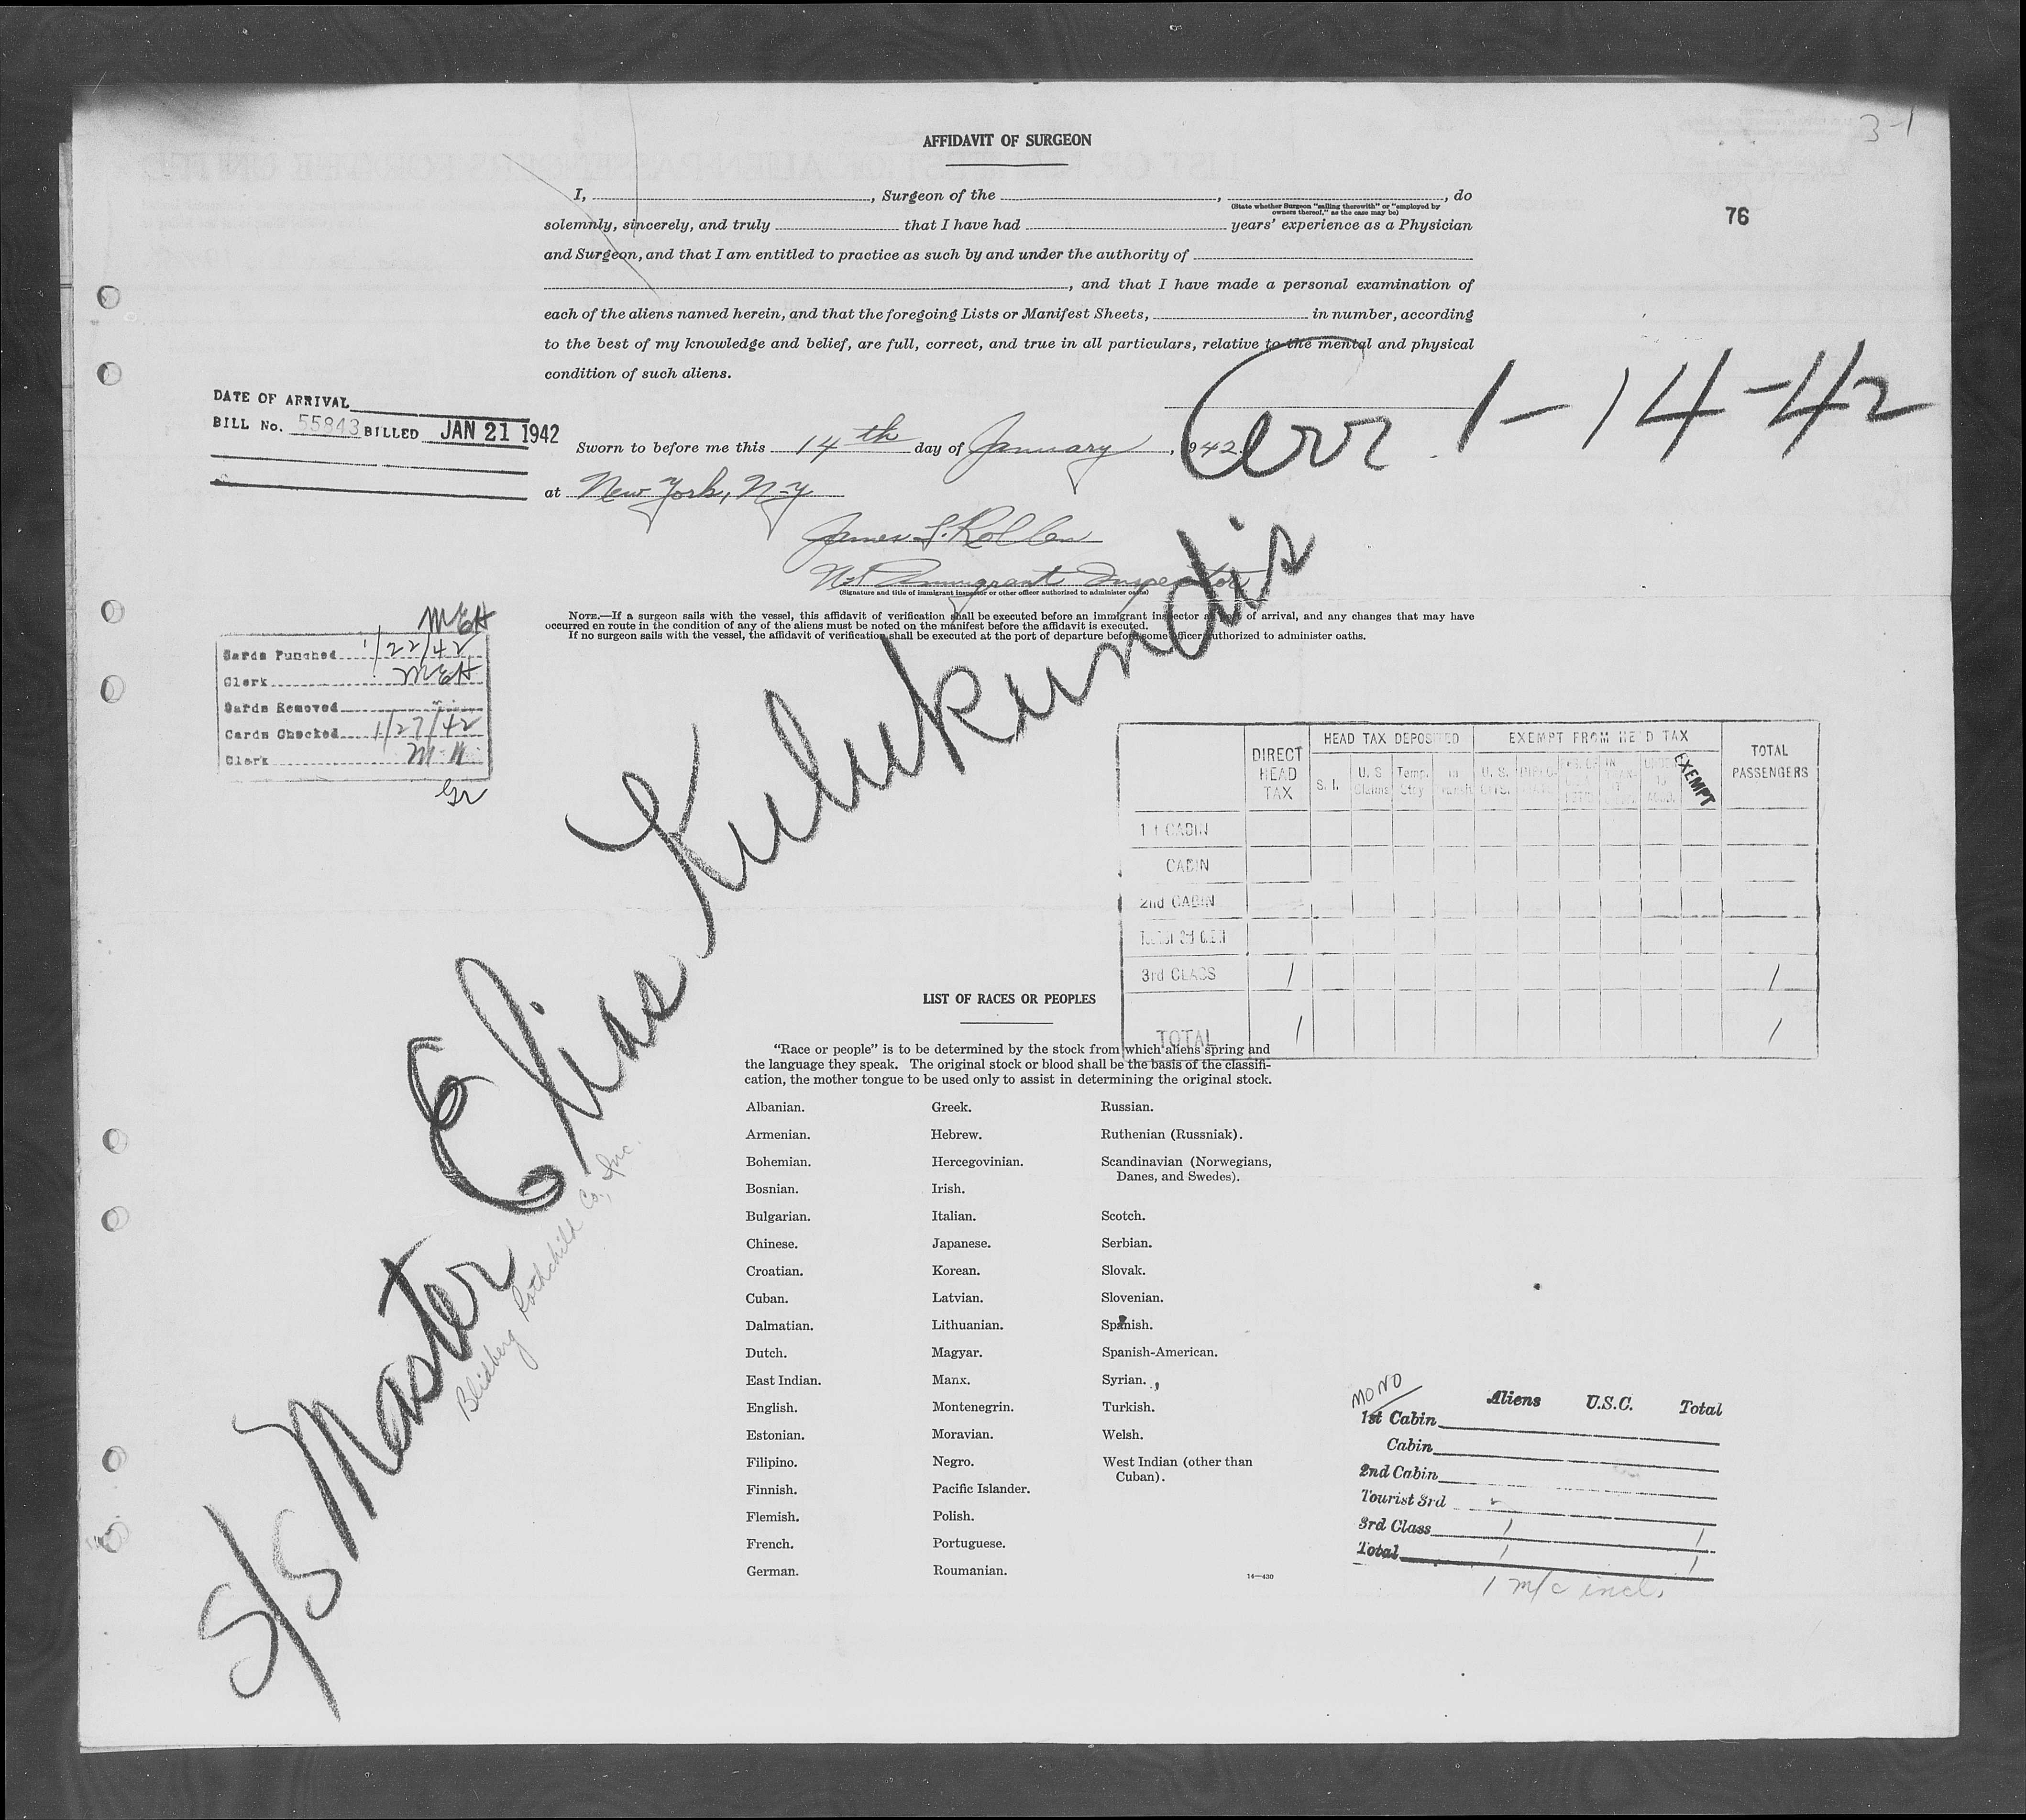 3-1
76
AFFIDAVIT OF SURGEON
I, , Surgeon of the , , do
(State whether Surgeon "sailing therewith" or "employed by
owners thereof," as the case may be)
solemnly, sincerely, and truly that I have had years' experience as a Physician
and Surgeon, and that I am entitled to practice as such by and under the authority of
, and that I have made a personal examination of
each of the aliens named herein, and that the foregoing Lists or Manifest Sheets, in number, according
to the best of my knowledge and belief, are full, correct, and true in all particulars, relative to the mental and physical
condition of such aliens.
Arr. 1-14-42
DATE OF ARRIVAL
BILL No. 55843 BILLED JAN 21 1942
Sworn to before me this 14th day of January, 1942.
at New York, N.Y.
James
Immigrant Inspector
(Signature and title of immigrant inspector or other officer authorized to administer oaths)
NOTE.—If a surgeon sails with the vessel, this affidavit of verification shall be executed before an immigrant inspector of arrival, and any changes that may have
occurred en route in the condition of any of the aliens must be noted on the manifest before the affidavit is executed.
If no surgeon sails with the vessel, the affidavit of verification shall be executed at the port of departure before some officer authorized to administer oaths.
MEH
Cards Punched 1/22/42
Clerk MEH
Cards Removed
Cards Checked 1/27/42
Clerk
S/S Master Elias Kulukundis
Blidberg Rothchild Co., Inc.
DIRECT HEAD TAX
HEAD TAX DEPOSITED
EXEMPT FROM HEAD TAX
TOTAL PASSENGERS
S. I.
U. S. Claims
Temp. Ctry
EXEMPT
1st CABIN
CABIN
2nd CABIN
3rd CLASS 1 1
TOTAL 1 1
LIST OF RACES OR PEOPLES
"Race or people" is to be determined by the stock from which aliens spring and
the language they speak. The original stock or blood shall be the basis of the classifi-
cation, the mother tongue to be used only to assist in determining the original stock.
Albanian.
Armenian.
Bohemian.
Bosnian.
Bulgarian.
Chinese.
Croatian.
Cuban.
Dalmatian.
Dutch.
East Indian.
English.
Estonian.
Filipino.
Finnish.
Flemish.
French.
German.
Greek.
Hebrew.
Hercegovinian.
Irish.
Italian.
Japanese.
Korean.
Latvian.
Lithuanian.
Magyar.
Manx.
Montenegrin.
Moravian.
Negro.
Pacific Islander.
Polish.
Portuguese.
Roumanian.
Russian.
Ruthenian (Russniak).
Scandinavian (Norwegians,
Danes, and Swedes).
Scotch.
Serbian.
Slovak.
Slovenian.
Spanish.
Spanish-American.
Syrian.
Turkish.
Welsh.
West Indian (other than
Cuban).
14—430
MONO
Aliens U.S.C. Total
1st Cabin
Cabin
2nd Cabin
Tourist 3rd
3rd Class 1 1
Total 1 1
1 m/c incl.